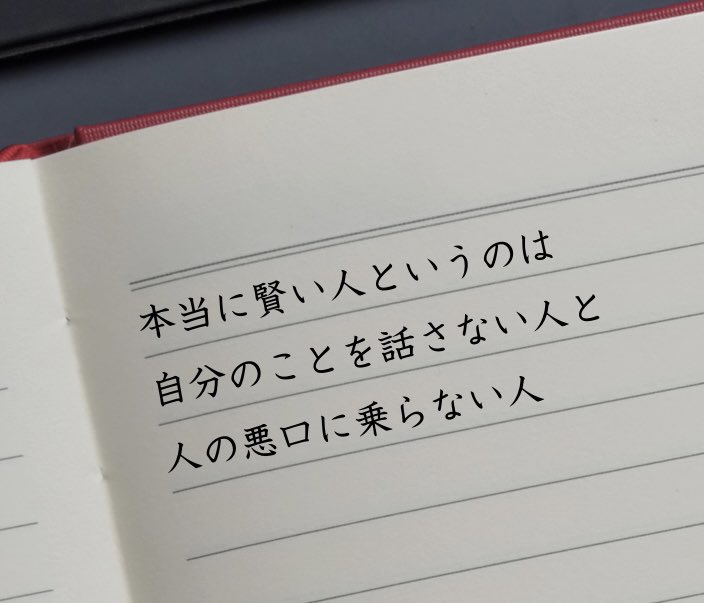 本当に賢い人というのは
自分のことを話さない人と
人の悪口に乗らない人